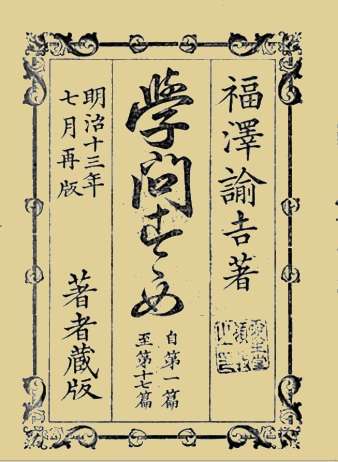 福澤諭吉著
学問すゝめ
自第一篇
至第十七篇
明治十三年
七月再版
著者蔵版